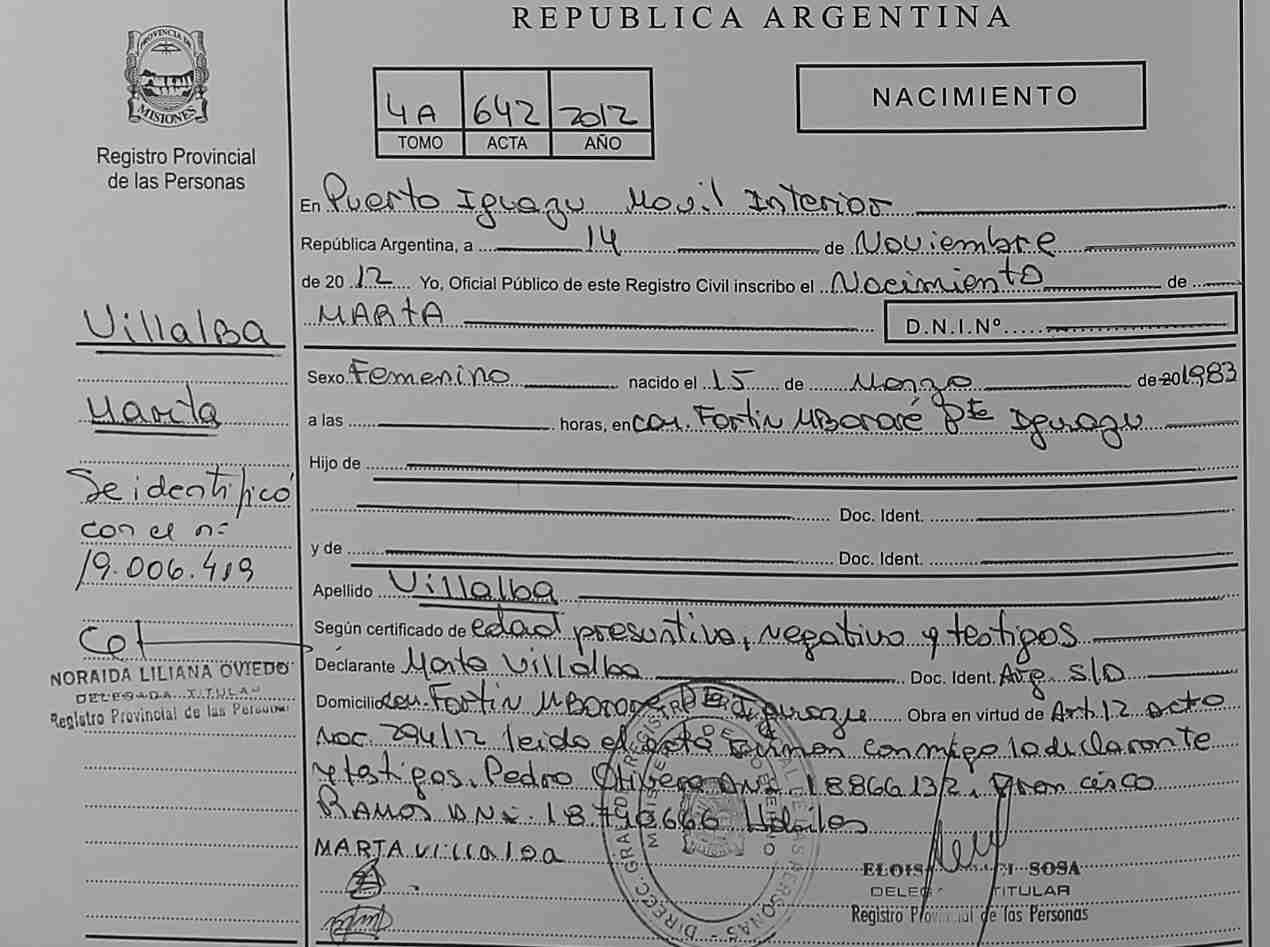 REPUBLICA ARGENTINA
PROVINCIA DE
MISIONES
Registro Provincial
de las Personas
4A 642 2012
TOMO ACTA AÑO
NACIMIENTO
En Puerto Iguazu Movil Interior
República Argentina, a 14 de Noviembre
de 20 12 Yo, Oficial Público de este Registro Civil inscribo el Nacimiento de
MARTA D.N.I.Nº
Sexo Femenino nacido el 15 de Marzo de 201983
a las horas, en Com. Fortin MBororé Pto Iguazu
Hijo de
Doc. Ident.
y de Doc. Ident.
Apellido Villalba
Según certificado de edad presuntiva, negativo y testigos
Declarante Marta Villalba Doc. Ident. Arg. S/D
Domicilio Com. Fortin MBororé Pto Iguazu Obra en virtud de Art. 12 acto
Nac. 294/12 leido el acta firman conmigo la declarante
y testigos. Pedro DNI. 18866132. Francisco
RAMOS DNI. 18790666 Hábiles
MARTA Villalba
SOSA
TITULAR
Registro Provincial de las Personas
Villalba
Marta
Se identificó
con el nº
19.006.419
NORAIDA LILIANA OVIEDO
DELEGADA TITULAR
Registro Provincial de las Personas